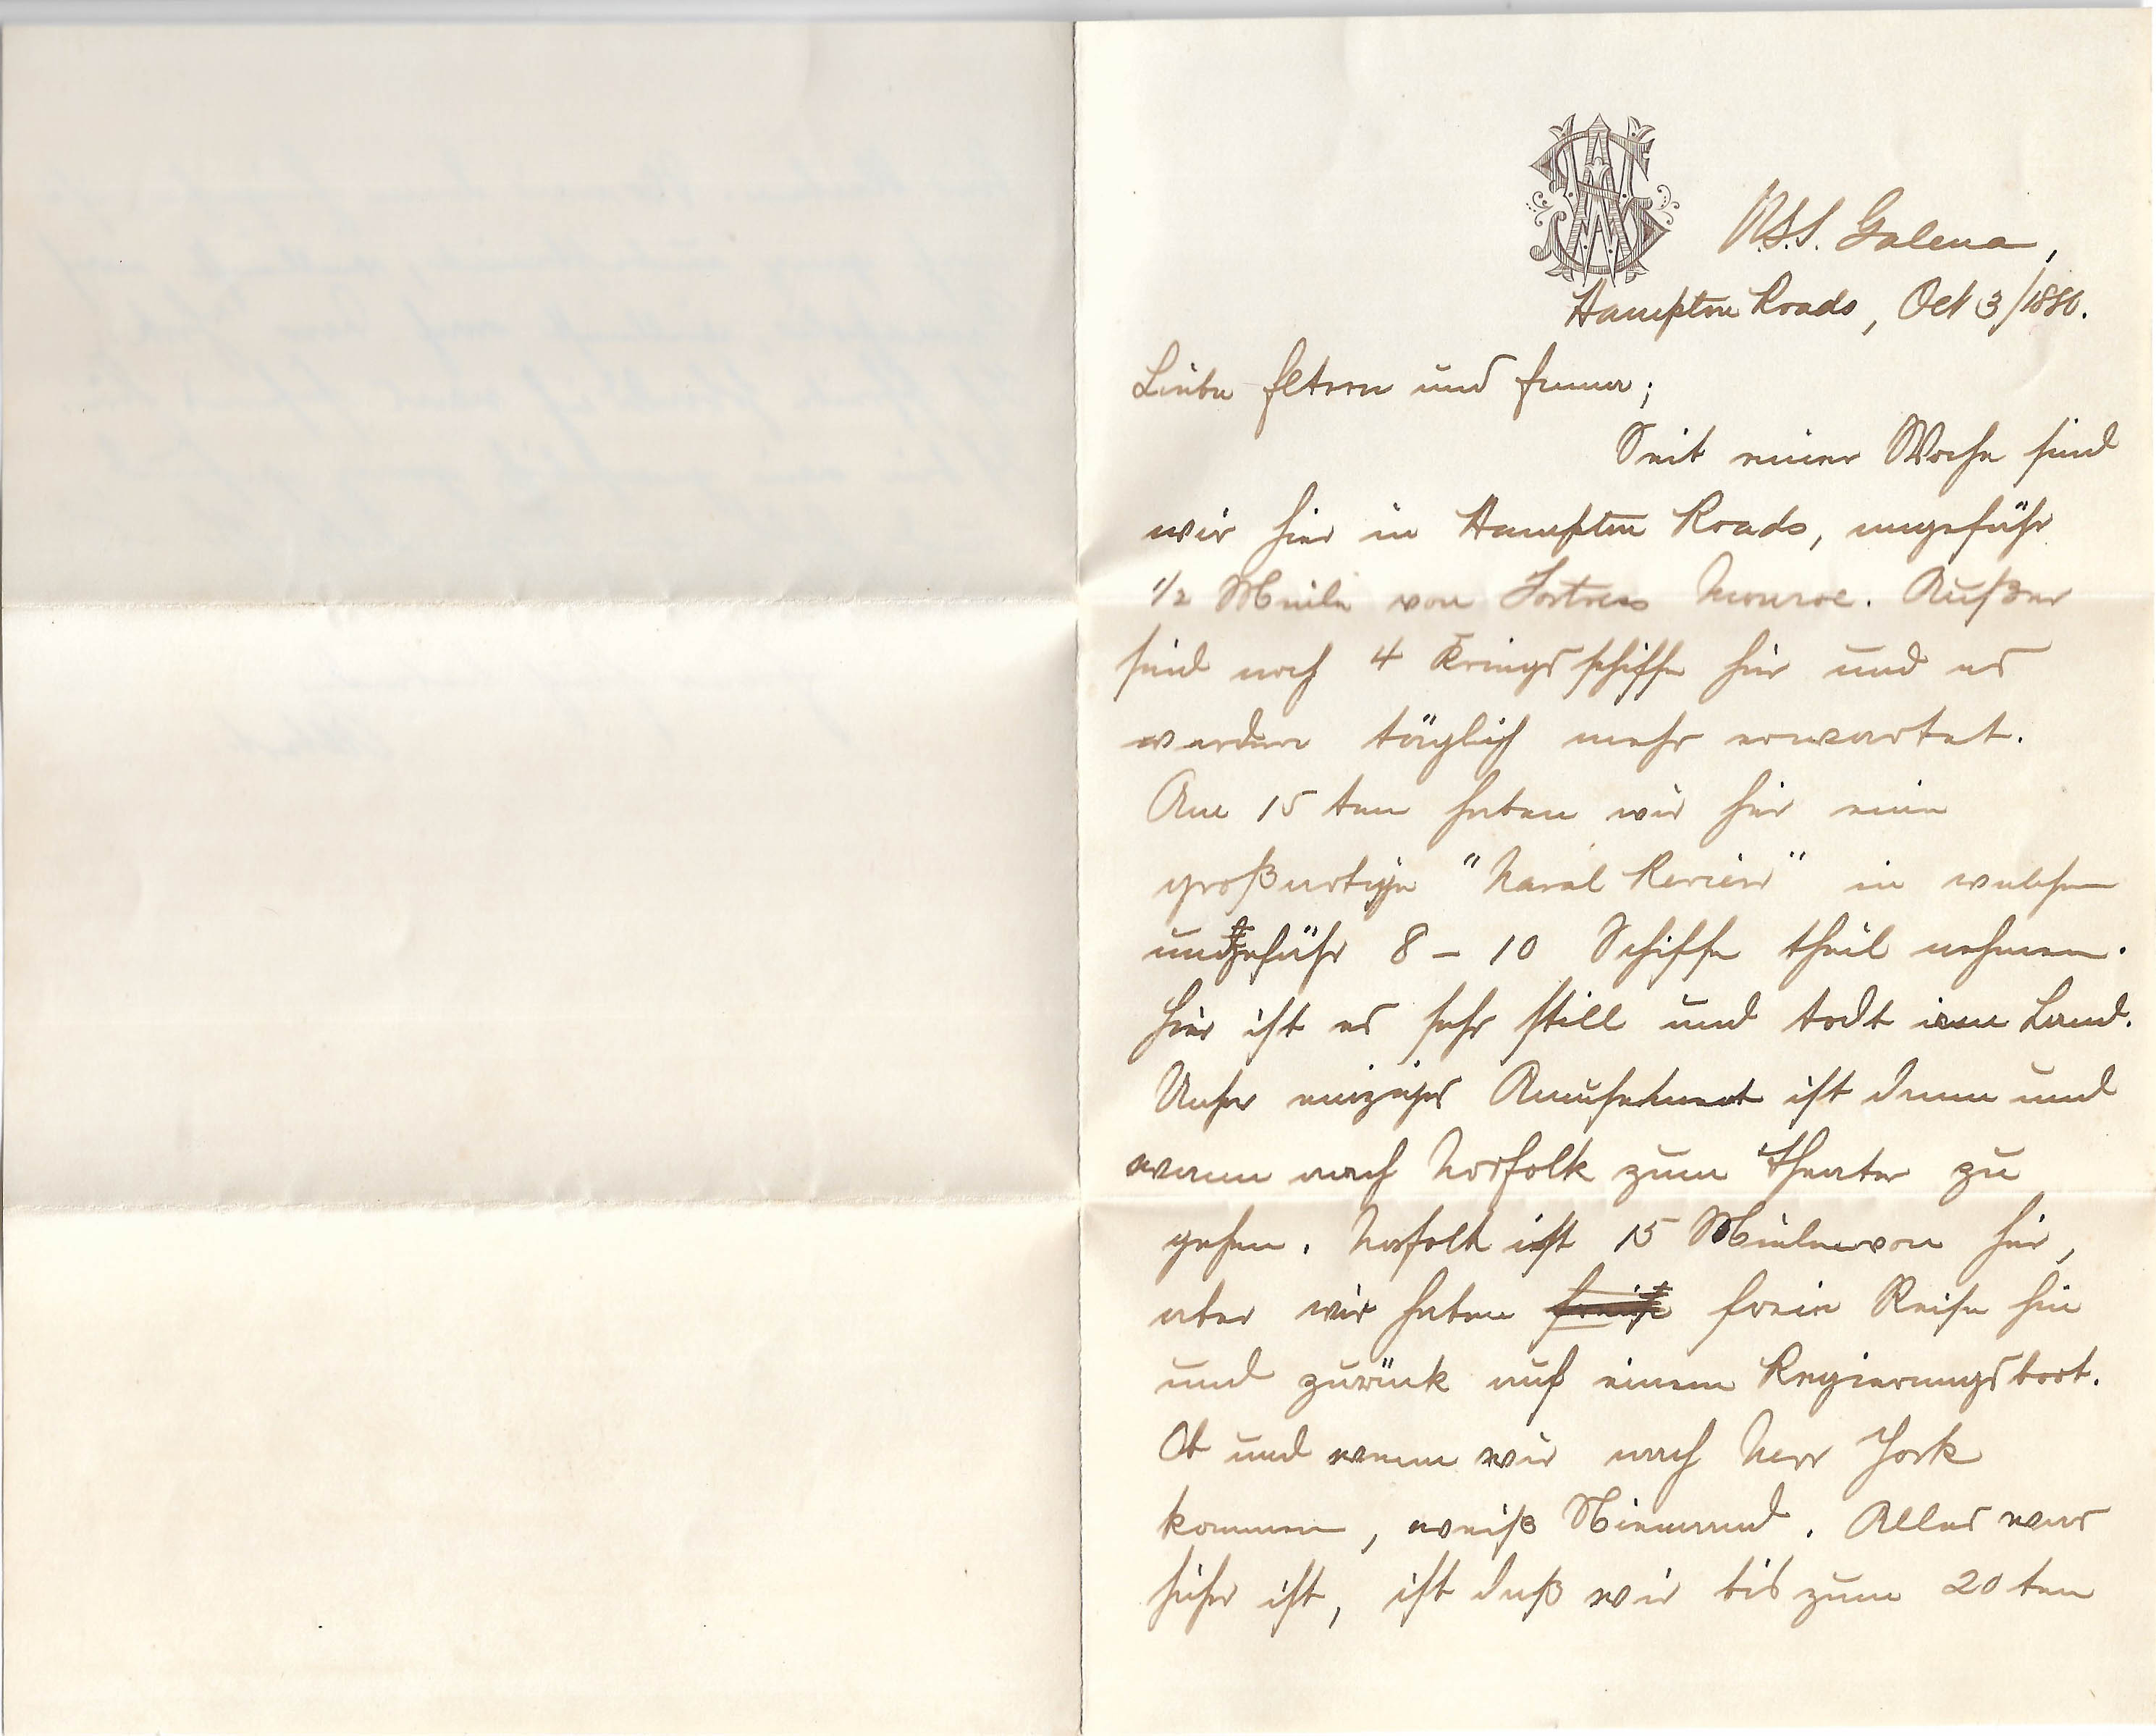 U.S.S. Galena,
Hampton Roads, Oct 3/1880.
Liebe Eltern und Emma;
Seit einer Woche sind
wir hier in Hampton Roads, ungefähr
1/2 Meile von Fortress Monroe. Außer
sind noch 4 Kriegsschiffe hier und es
werden täglich mehr erwartet.
Am 15ten haben wir hier eine
großartige "Naval Review" in welchem
ungefähr 8 – 10 Schiffe theil nehmen.
Hier ist es sehr still und todt am Land.
Unser einziges Amusement ist dann und
wann nach Norfolk zum Theater zu
gehen. Norfolk ist 15 Meilen von hier,
aber wir haben freie Reise hin
und zurück auf einem Regierungsboot.
Ob und wenn wir nach New York
kommen, weiß Niemand. Alles was
sicher ist, ist daß wir bis zum 20ten